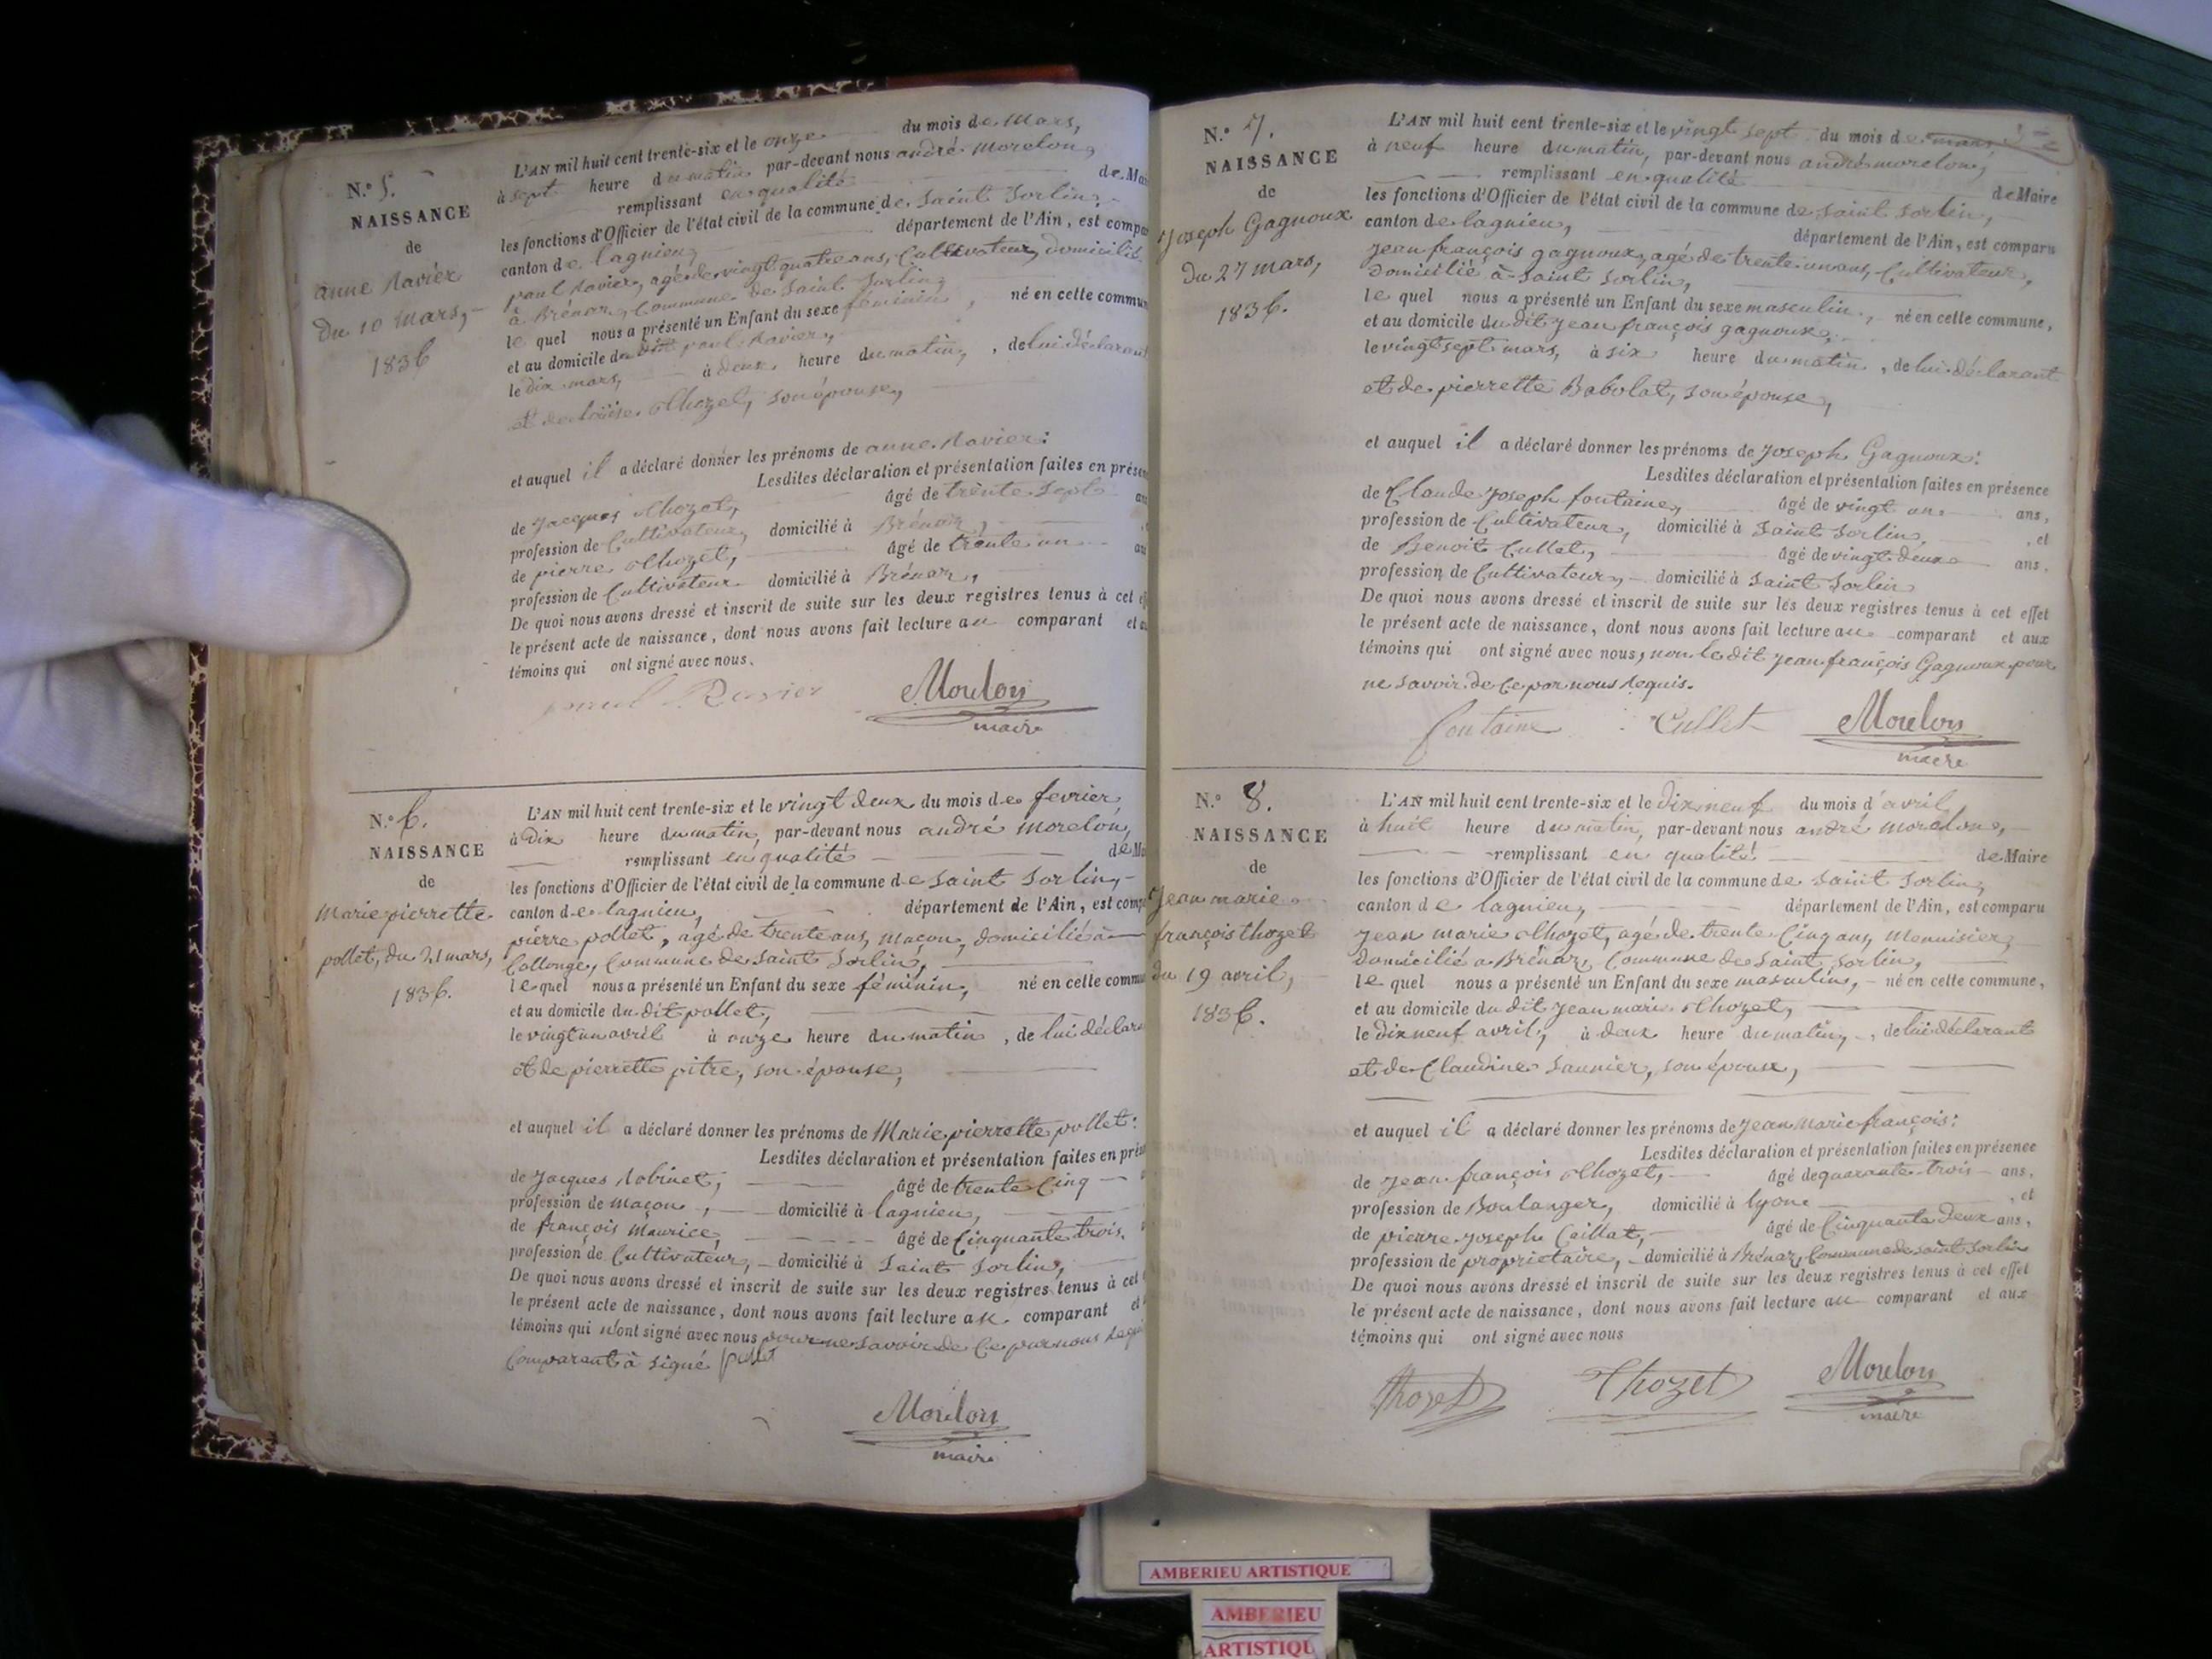 N.º 5.
NAISSANCE
de
anne Ravier
Du 10 mars,
1836
L'AN mil huit cent trente-six et le onze du mois de Mars,
à sept heure du matin par-devant nous andré morelon,
remplissant en qualité de Mai
les fonctions d'Officier de l'état civil de la commune de Saint Sorlin,
canton de lagnieu, département de l'Ain, est compa
paul Ravier, agé de vingt quatre ans, Cultivateur, domicilié
à Brénaz, Commune de Saint Sorlin,
le quel nous a présenté un Enfant du sexe féminin, né en cette commun
et au domicile du dit paul Ravier,
le dix mars, à deux heure du matin, , de lui déclarant
et de loüise thozet, son épouse,
et auquel il a déclaré donner les prénoms de anne Ravier:
Lesdites déclaration et présentation faites en présen
de Jacques thozet, âgé de trente sept an
profession de Cultivateur, domicilié à Brénaz,
de pierre thozet, âgé de trente un an
profession de Cultivateur domicilié à Brénaz,
De quoi nous avons dressé et inscrit de suite sur les deux registres tenus à cet eff
le présent acte de naissance, dont nous avons fait lecture au comparant et au
témoins qui ont signé avec nous.
paul Ravier Morelon
maire
N.º 6.
NAISSANCE
de
Marie pierrette
pollet, du 21 mars,
1836.
L'AN mil huit cent trente-six et le vingt deux du mois de fevrier,
à dix heure du matin, par-devant nous andré morelon,
remplissant en qualité de Ma
les fonctions d'Officier de l'état civil de la commune de Saint Sorlin,
canton de lagnieu, département de l'Ain, est compa
pierre pollet, agé de trente ans, maçon, domicilié à
Collonge, Commune de Saint Sorlin,
le quel nous a présenté un Enfant du sexe féminin, né en cette commun
et au domicile du dit pollet,
le vingt un avril à onze heure du matin , de lui déclara
et de pierrette pitre, son épouse,
et auquel il a déclaré donner les prénoms de Marie pierrette pollet:
Lesdites déclaration et présentation faites en prés
de Jacques Robinet, âgé de trente Cinq
profession de maçon, domicilié à lagnieu,
de françois maurice, âgé de Cinquante trois.
profession de Cultivateur, domicilié à Saint Sorlin,
De quoi nous avons dressé et inscrit de suite sur les deux registres tenus à cet
le présent acte de naissance, dont nous avons fait lecture au comparant et
témoins qui n'ont signé avec nous pour ne savoir de Ce par nous Requi
Comparant à signé pollet
Morelon
maire
N.º 7.
NAISSANCE
de
Joseph Gagnoux
du 27 mars,
1836.
L'AN mil huit cent trente-six et le vingt sept du mois de mars
à neuf heure du matin, par-devant nous andré morelon,
remplissant en qualité de Maire
les fonctions d'Officier de l'état civil de la commune de Saint Sorlin,
canton de lagnieu, département de l'Ain, est comparu
Jean françois gagnoux, agé de trente un ans, Cultivateur,
domicilié à Saint Sorlin,
le quel nous a présenté un Enfant du sexe masculin, né en cette commune,
et au domicile du dit Jean françois gagnoux,
le vingt sept mars, à six heure du matin , de lui déclarant
et de pierrette Babolat, son épouse,
et auquel il a déclaré donner les prénoms de Joseph Gagnoux:
Lesdites déclaration et présentation faites en présence
de Claude Joseph fontaine, âgé de vingt un ans,
profession de Cultivateur, domicilié à Saint Sorlin, , et
de Benoit Cullet, âgé de vingt deux ans,
profession de Cultivateur, domicilié à Saint Sorlin
De quoi nous avons dressé et inscrit de suite sur les deux registres tenus à cet effet
le présent acte de naissance, dont nous avons fait lecture au comparant et aux
témoins qui ont signé avec nous, non le dit Jean françois Gagnoux pour
ne savoir de Ce par nous Requis.
fontaine Cullet Morelon
maire
N.º 8.
NAISSANCE
de
Jean marie
françois thozet
du 19 avril,
1836.
L'AN mil huit cent trente-six et le dix neuf du mois d'avril
à huit heure du matin, par-devant nous andré morelon,
remplissant en qualité de Maire
les fonctions d'Officier de l'état civil de la commune de Saint Sorlin,
canton de lagnieu, département de l'Ain, est comparu
Jean marie thozet, agé de trente Cinq ans, Menuisier,
domicilié a Brénaz, Commune de Saint Sorlin,
le quel nous a présenté un Enfant du sexe masculin, né en cette commune,
et au domicile du dit Jean marie thozet,
le dix neuf avril, à deux heure du matin, , de lui déclarant
et de Claudine Saunier, son épouse,
et auquel il a déclaré donner les prénoms de Jean Marie françois:
Lesdites déclaration et présentation faites en présence
de Jean françois thozet, âgé de quarante trois ans,
profession de Boulanger, domicilié à lyon , et
de pierre Joseph Caillat, âgé de Cinquante deux ans,
profession de proprietaire, domicilié à Brénaz, Commune de Saint Sorlin
De quoi nous avons dressé et inscrit de suite sur les deux registres tenus à cet effet
le présent acte de naissance, dont nous avons fait lecture au comparant et aux
témoins qui ont signé avec nous
Thozet Thozet Morelon
maire
AMBERIEU ARTISTIQUE
AMBERIEU
ARTISTIQU